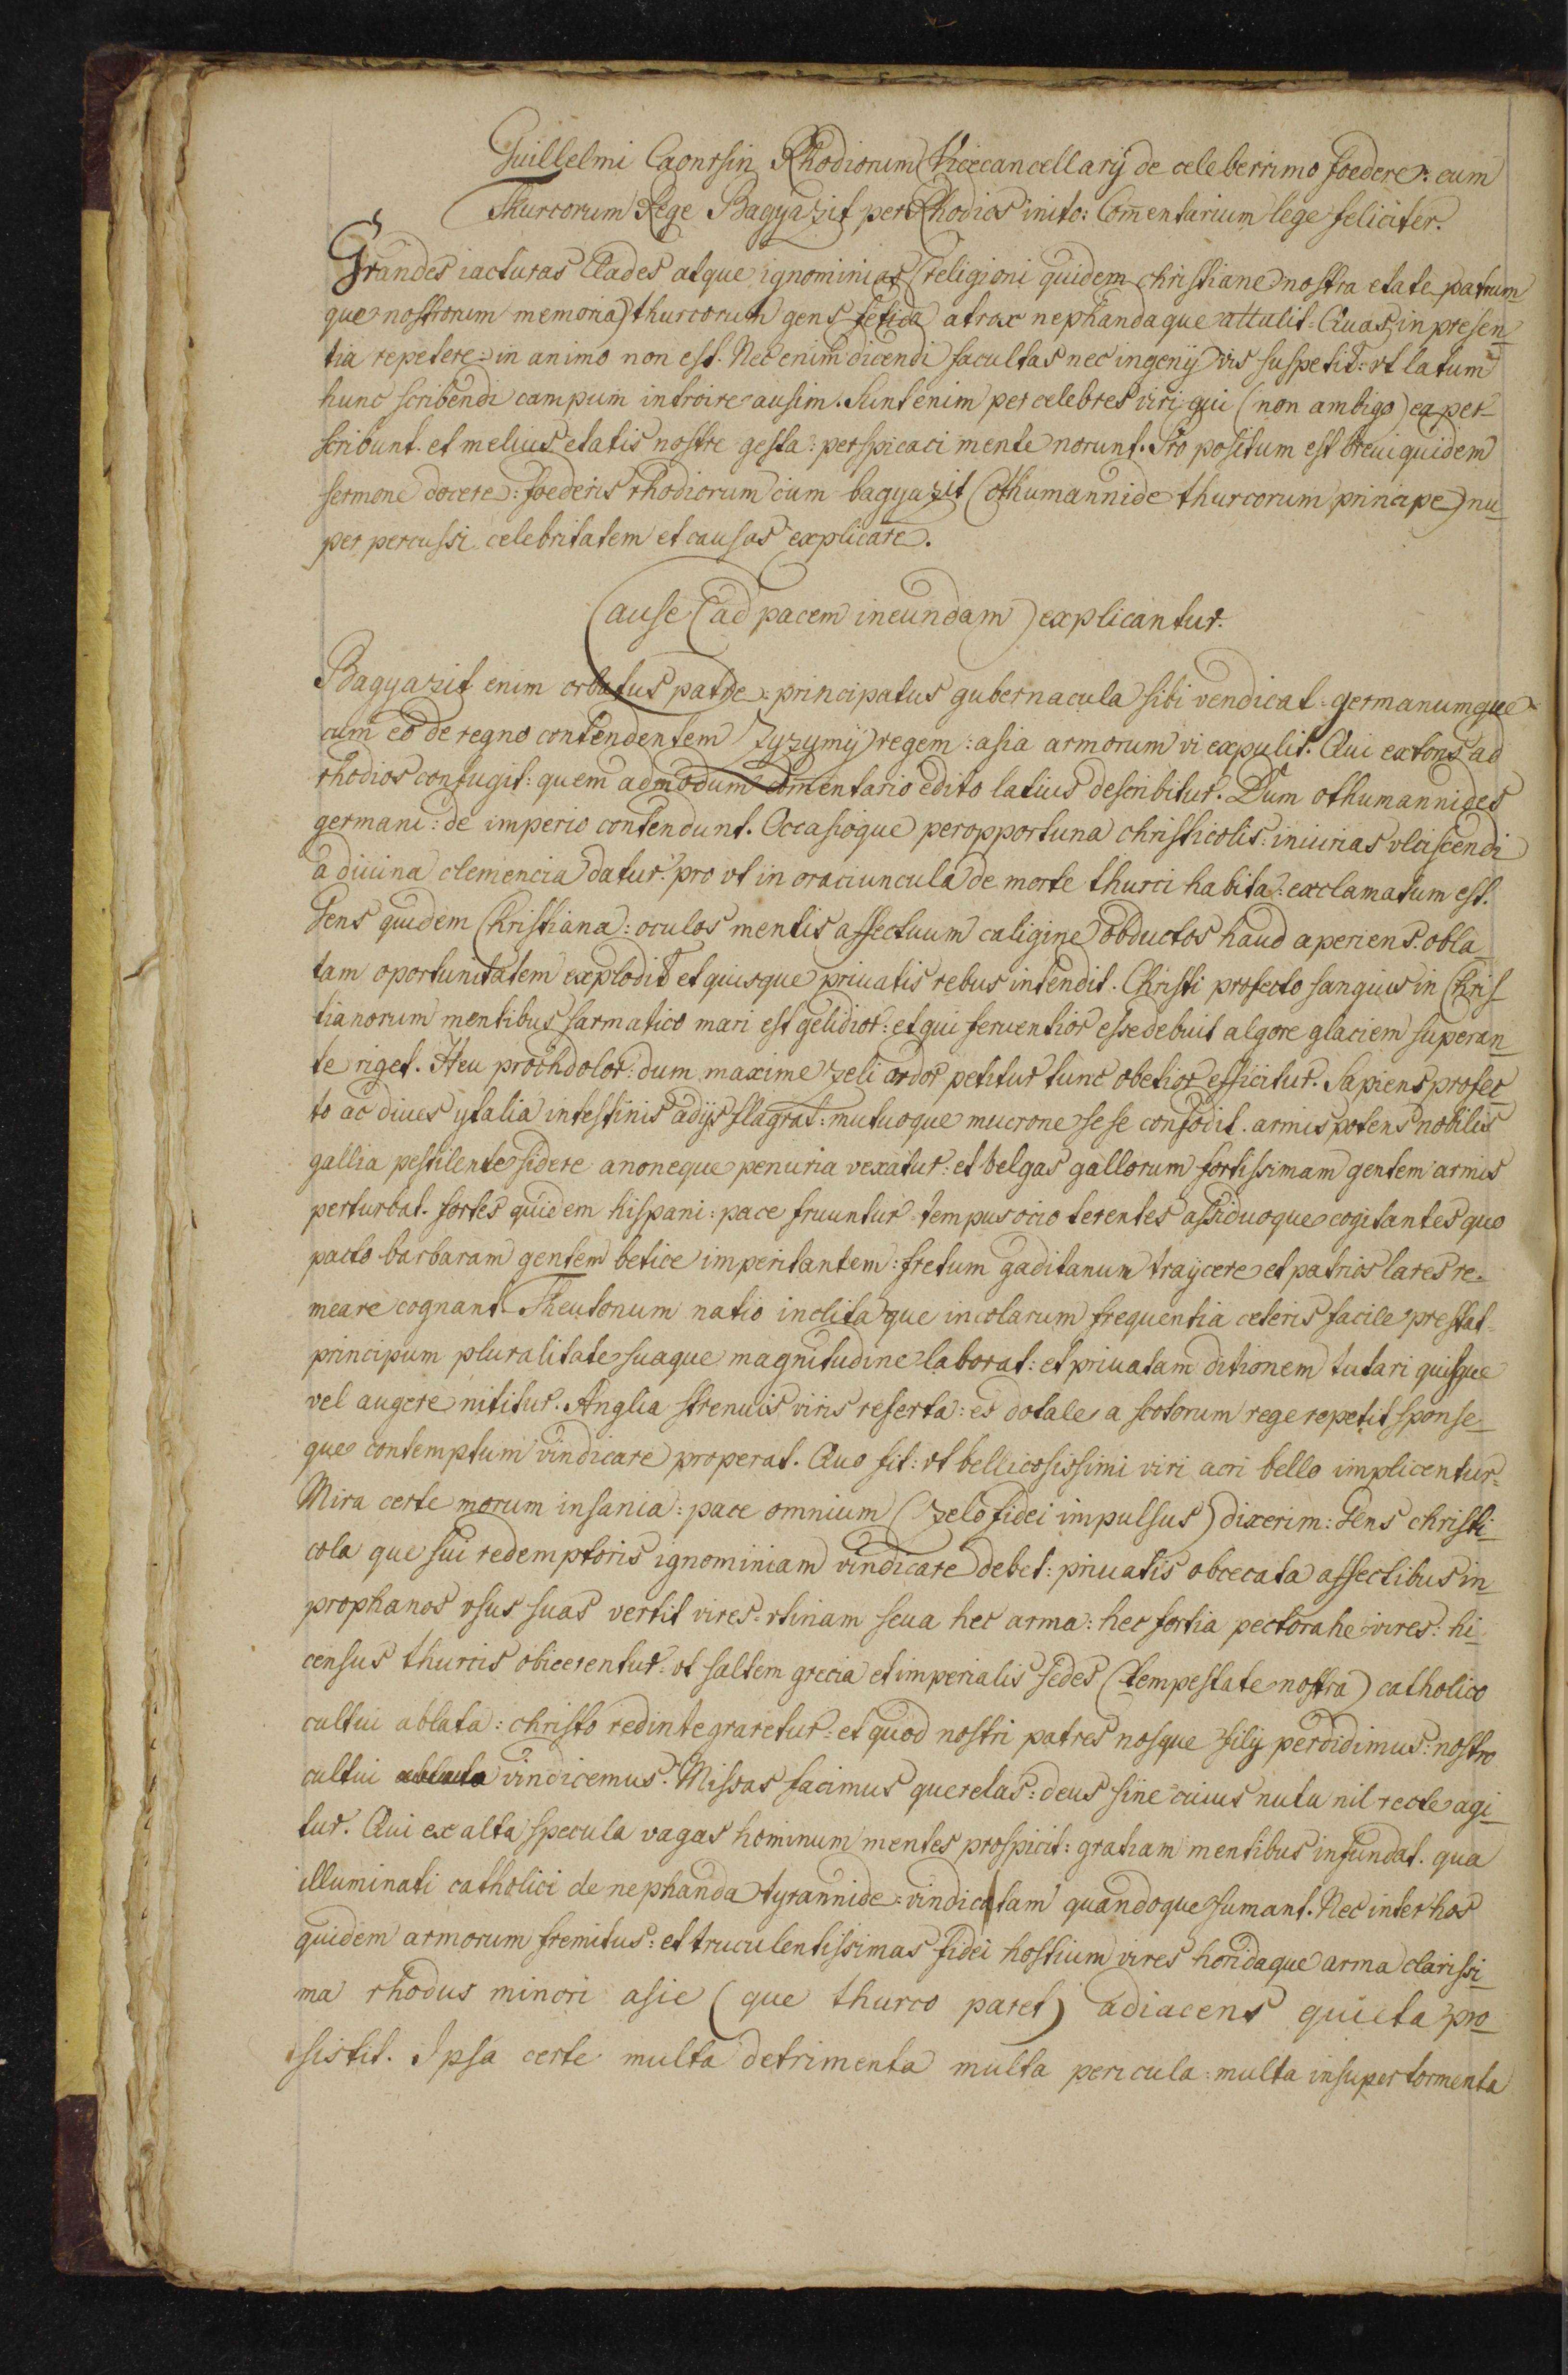 Guillelmi Caonrsin Rhodiorum Vicecancellarij de celeberrimo foedere: cum
Thurcorum Rege Bagyazit per Rhodios inito: Com̄entarium lege feliciter.
Grandes iacturas Clades atque ignominias (religioni quidem christiane nostra etate patrum
que nostrorum memoria) thurcorum gens fetida atrox nephandaque attulit: Quas in presen-
tia repetere: in animo non est. Nec enim dicendi facultas nec ingenij vis suspetit: vt latum
hunc scribendi campum introire ausim. Sunt enim percelebres viri qui (non ambigo) ea per-
scribunt. et melius etatis nostre gesta: perspicaci mente norunt. Pro positum est breui quidem
sermone docere: foederis rhodiorum cum bagyazit (othumannide thurcorum principe) nu-
per percussi celebritatem et causas explicare.
Cause (ad pacem ineundam) explicantur.
Bagyazit enim orbatus patre: principatus gubernacula sibi vendicat: germanumque
cum eo de regno contendentem Zyzymij regem: asia armorum vi expulit. Qui extons ad
rhodios confugit: quem admodum com̄entario edito latius describitur. Dum othumannides
germani: de imperio contendunt. Occasioque peropportuna christicolis: iniurias vlciscendi
a diuina clemencia datur: pro vt in oraciuncula de morte thurci habita: exclamatum est.
Gens quidem Christiana: oculos mentis affectuum caligine obductos haud aperiens. obla
tam oportunitatem explodit et quisque priuatis rebus intendit. Christi profecto sanguis in Chris-
tianorum mentibus sarmatico mari est gelidior: et qui feruentior esse debuit algore glaciem superan-
te riget. Heu prochdolor: dum maxime zeli ardor petitur tunc obetior efficitur. Sapiens profec-
to ac diues ytalia intestinis adijs flagrat: mutuoque mucrone sese confodit. armis potens nobilis
gallia pestilente sidere anoneque penuria vexatur: et belgas gallorum fortissimam gentem armis
perturbat. fortes quidem hispani: pace fruuntur tempus ocio terentes assiduoque cogitantes quo
pacto barbaram gentem betice imperitantem: fretum gaditanum traijcere et patrios lares re-
meare cognant. Theutonum natio inclita que incolarum frequentia ceteris facile prestat
principum pluralitate suaque magnitudine laborat: et priuatam ditionem tutari quisque
vel augere nititur. Anglia strenuis viris referta: es dotale a scotorum rege repetit sponse-
que contemptum vindicare properat. Quo fit: vt bellicosissimi viri acri bello implicentur.
Mira certe morum insania: pace omnium (zelo fidei impulsus) dixerim: Gens christi-
cola que sui redemptoris ignominiam vindicare debet: priuatis obcecata affectibus in
prophanos vsus suas vertit vires. vtinam seua hec arma: hec fortia pectora he vires: hi
census thurcis obicerentur: vt saltem grecia et imperialis sedes (tempestate nostra) catholico
cultui ablata: christo redintegraretur: et quod nostri patres nosque filij perdidimus: nostro
cultui vindicemus. Missas facimus querelas: deus sine cuius nutu nil recte agi-
tur. Qui ex alta specula vagas hominum mentes prospicit: gratiam mentibus infundat. qua
illuminati catholici de nephanda tyrannide: vindictam quandoque sumant. Nec inter hos
quidem armorum fremitus: et truculentissimas fidei hostium vires horridaque arma clarissi-
ma rhodus minori asie (que thurco paret) adiacens quieta pro-
sistit. Ipsa certe multa detrimenta multa pericula: multa insuper tormenta